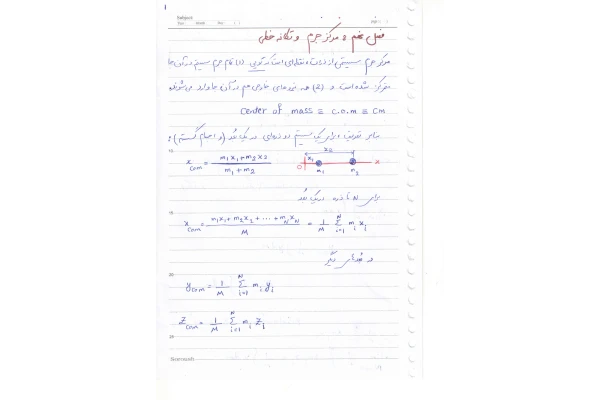 1
Subject
فصل نهم : مرکز جرم و تکانه خطی
مرکز جرم سیستمی از ذرات نقطه‌ای است که گویی (1) تمام جرم سیستم در آن جا
متمرکز شده است و (2) همه نیروهای خارجی هم در آن جا وارد می‌شوند
center of mass ≡ C.O.M ≡ CM
بنابر تعریف برای یک سیستم دو ذره‌ای در یک بُعد (و اجسام گسسته) :
x_com = (m₁x₁+m₂x₂)/(m₁+m₂)
x₂
x₁
O m₁ m₂ x
برای N تا ذره در یک بُعد
x_com = (m₁x₁+m₂x₂+⋯+m_N x_N)/M = 1/M Σ_{i=1}^{N} m_i x_i
در بُعدهای دیگر
y_com = 1/M Σ_{i=1}^{N} m_i y_i
z_com = 1/M Σ_{i=1}^{N} m_i z_i